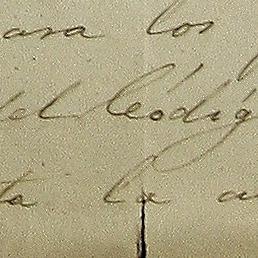 para los
del Códig
ta la